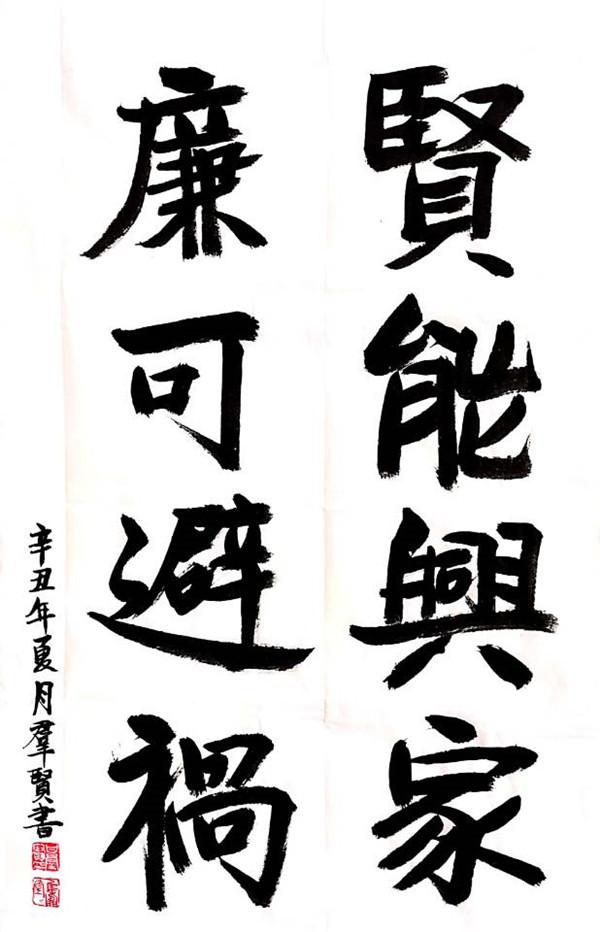 賢能興家
廉可避禍
辛丑年夏月羣賢書